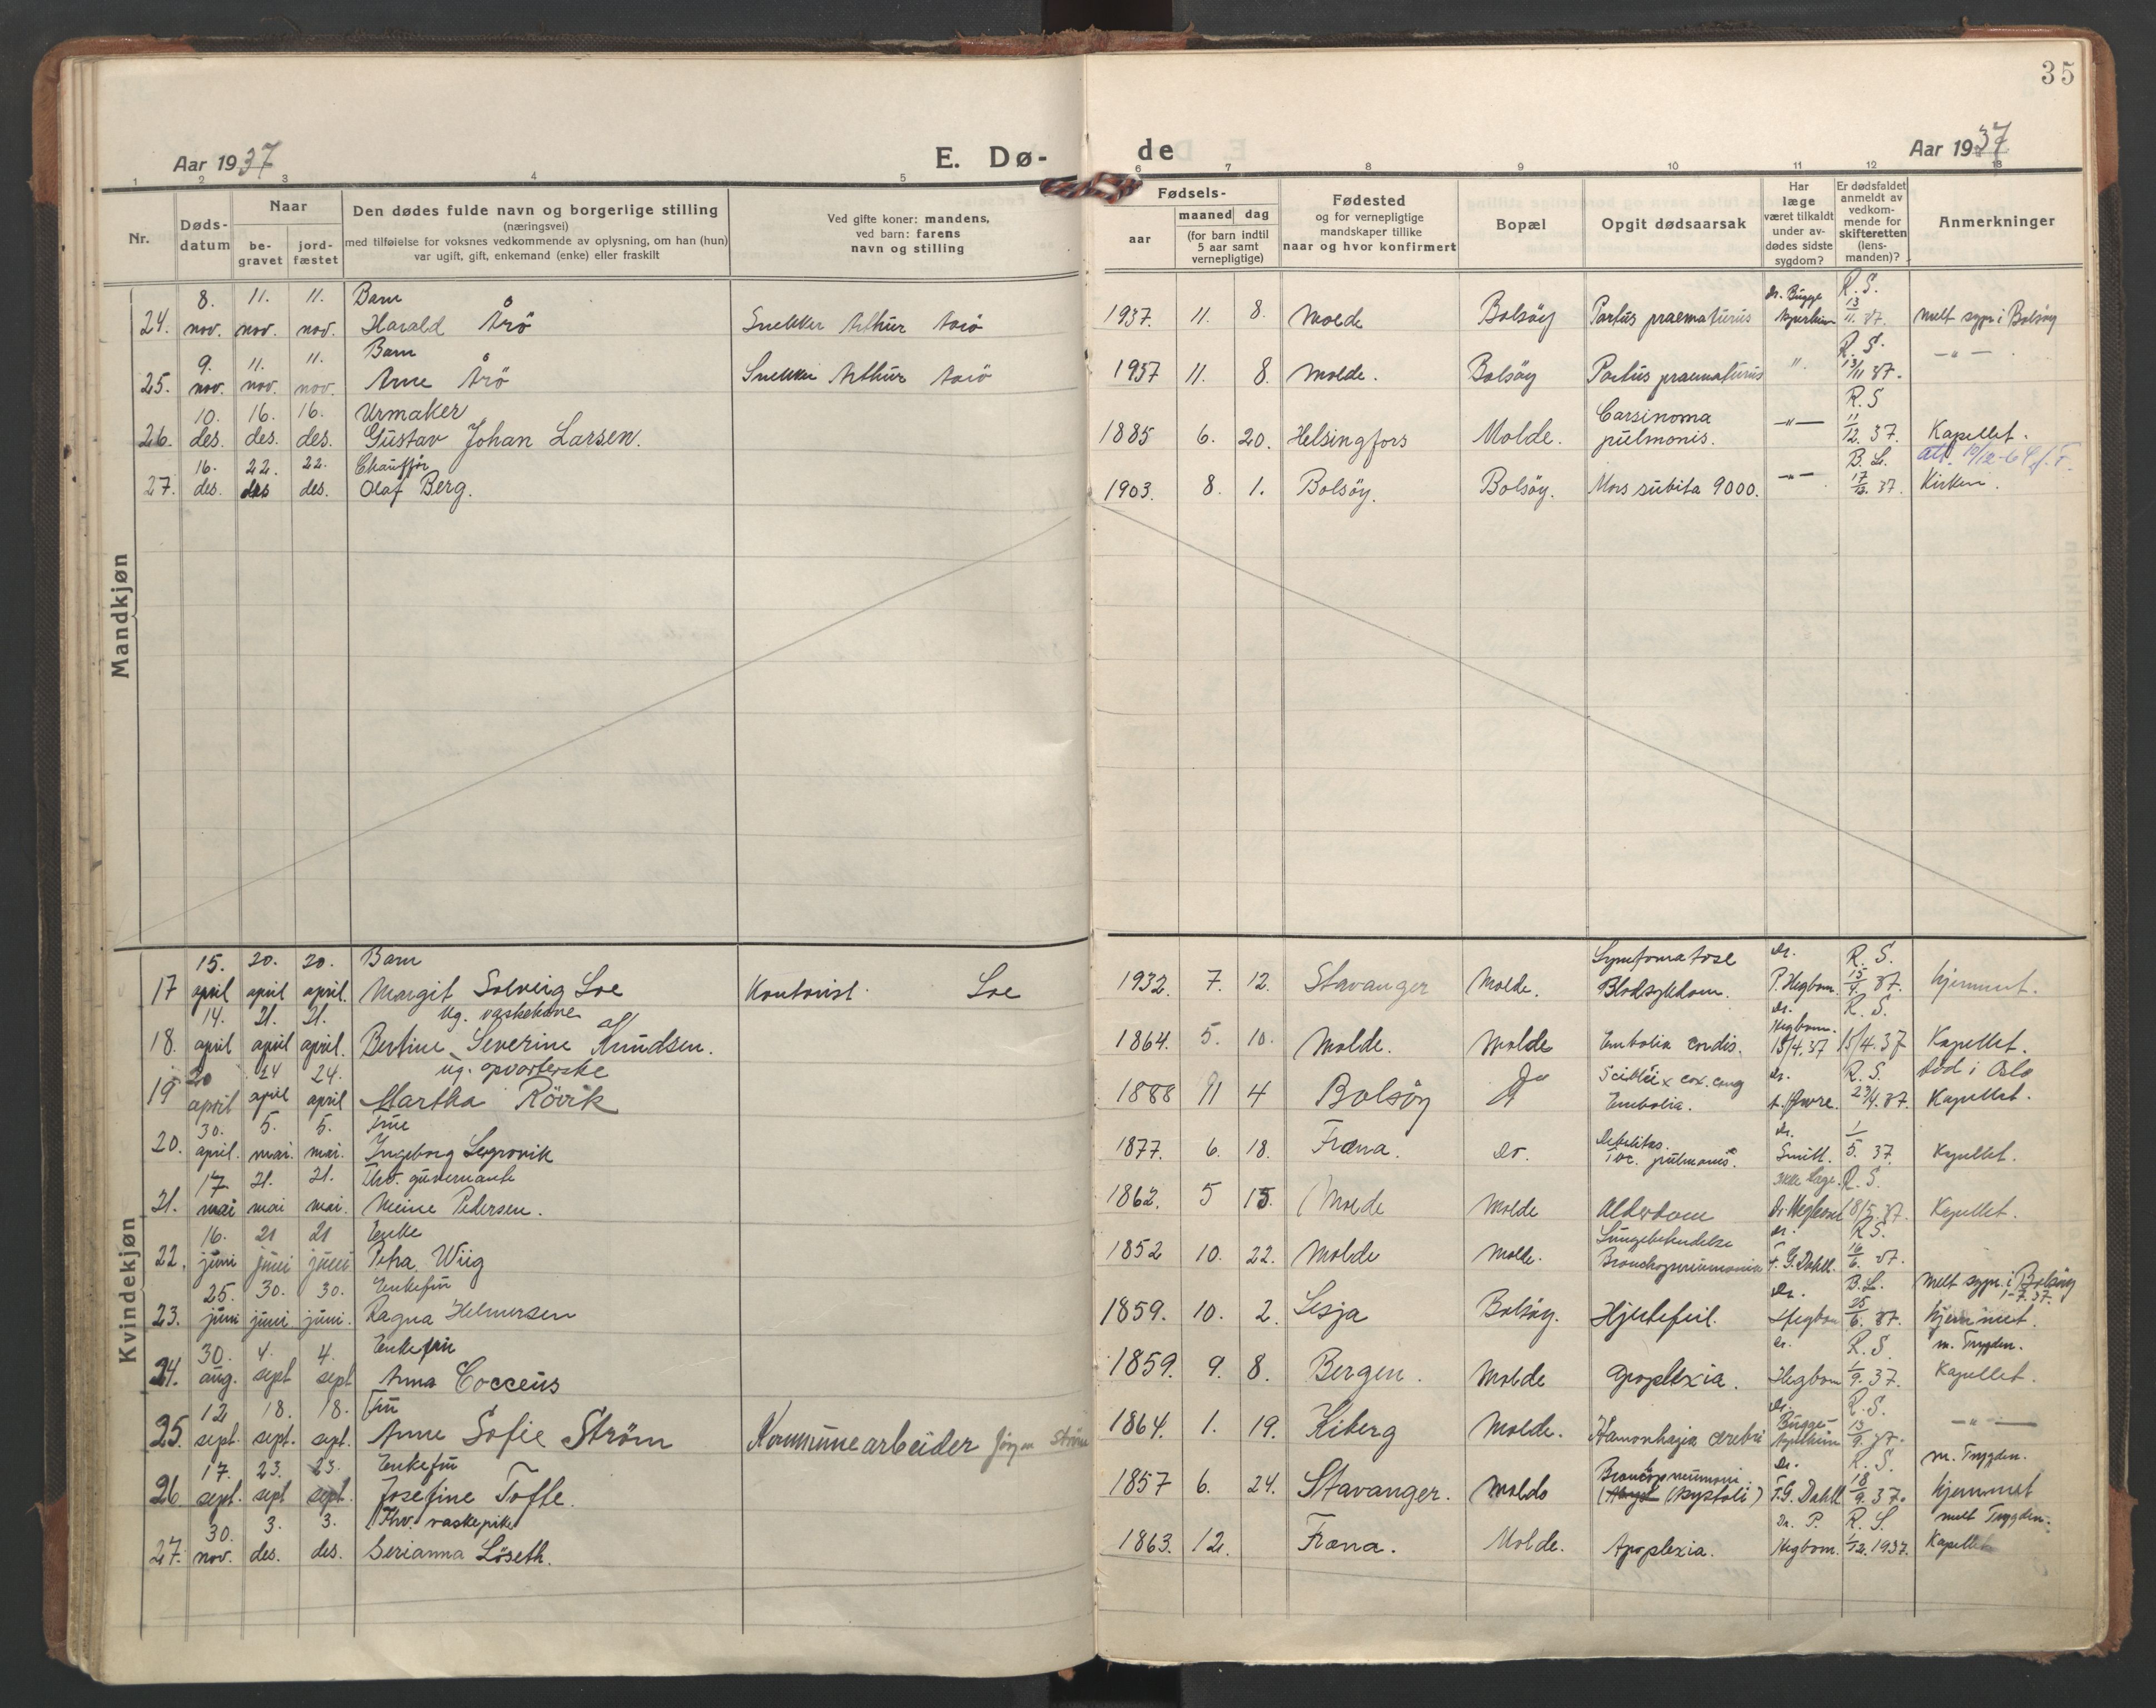 35
Aar 1937
E. Dø-
de
Aar 1937
1 2 3 4 5 6 7 8 9 10 11 12 13
Nr.
Døds-
datum
Naar
be-
gravet
jord-
fæstet
Den dødes fulde navn og borgerlige stilling
(næringsvei)
med tilføielse for voksnes vedkommende av oplysning, om han (hun)
var ugift, gift, enkemand (enke) eller fraskilt
Ved gifte koner: mandens,
ved barn: farens
navn og stilling
Fødsels-
aar
maaned dag
(for barn indtil
5 aar samt
vernepligtige)
Fødested
og for vernepligtige
mandskaper tillike
naar og hvor konfirmert
Bopæl
Opgit dødsaarsak
Har
læge
været tilkaldt
under av-
dødes sidste
sygdom?
Er dødsfaldet
anmeldt av
vedkom-
mende for
skifteretten
(lens-
manden)?
Anmerkninger
Mandkjøn
8. 11. 11. Barn Dr. Bugge R. S.
24. nov. nov. nov. Harald Årö Snekker Arthur Aarö 1937. 11. 8. Molde Bolsöy Partus praematurus 13/11. 37. melt sypr. i Bolsöy
9. 11. 11. Barn R. S. —"—
25. nov. nov. nov. Arne Årö Snekker Arthur Aarö 1937 11. 8. Molde. Bolsöy Partus praematurus " 13/11 37.
10. 16. 16. Urmaker Carsinoma R. S
26. des. des. des. Gustav Johan Larsen. 1885 6. 20. Helsingfors Molde. pulmonis. —"— 11/12. 37. Kapellet.
16. 22. 22. Chaufför B. L. att. 10/12-64 J. F.
27. des. des des. Olaf Berg. 1903. 8. 1. Bolsöy. Bolsöy. Mors subita 9000. —"— 17/12. 37. Kirken.
Kvindekjøn
15. 20. 20. Barn Dr. R. S.
17 april april april. Margit Solveig Loe Kontorist. Loe 1932. 7. 12. Stavanger Molde. Blodsykdom. P. Hegbom. 15/4. 37. hjemmet.
14. 21. 21. Ug. vaskekone Dr. R. S.
18. april april april. Bertine Severine Knudsen. 1864. 5. 10. Molde. Molde Embolia cordis. Hegbom. 15/4. 37 15/4. 37 Kapellet.
20 24 24. ug. opvarterske Dr. R. S. död i Oslo
19 april april april Martha Rövik 1888 11 4 Bolsöy Do Embolia. 23/4. 37. Kapellet.
30. 5. 5. Frue Debilitas. Dr. 1/
20. april. mai. mai. Ingeborg 1877. 6. 18. Fræna. Do. Tbc. pulmonis. Smitt. 5. 37. Kapellet.
17. 21. 21. Fhv. guvernante Ikke læge. R. S.
21. mai mai mai. Meine Pedersen. 1862. 5 15. Molde Molde Alderdom Dr. Hegbom 18/5. 37. Kapellet.
16. 21 21 Enke Lungebetendelse Dr. R. S.
22. juni juni juni Petra Wiig 1852 10. 22. Molde Molde. Bronchopneumonia T. G. Dahll. 16/6. 37.
25. 30. 30. Enkefru Dr. B. L. melt sypr. i Bolsöy 1-7. 37.
23. juni juni juni. Ragna Helmersen 1859. 10. 2. Lesja Bolsöy. Hjertefeil. Hegbom 25/6. 37. hjemmet.
30. 4. 4. Enkefru Dr. R. S. m. Trygden.
24. aug. sept sept Anna Cocceus 1859. 9. 8. Bergen. Molde Apoplexia. Hegbom 1/9. 37. Kapellet.
12 18. 18. Fru Dr. R. S.
25. sept. sept. sept. Anne Sofie Ström Kommunearbeider Jörgen Ström 1864. 1. 19. Kiberg Molde. Hæmorrhagia cerebri Bugge- 13/9. 37. —"—
17. 23. 23. Enkefru Dr. R. S. m. Trygden.
26. sept. sept sept. Josefine Tofte. 1857 6. 24. Stavanger. Molde T. G. Dahll 18/9. 37. hjemmet
30. 3. 3. Fhv. vaskepike Dr. P. R. S. melt Trygden.
27. nov. des. des. Serianna Löseth. 1863. 12. Fræna. Molde. Apoplexia. Hegbom. 1/12. 1937. Kapellet